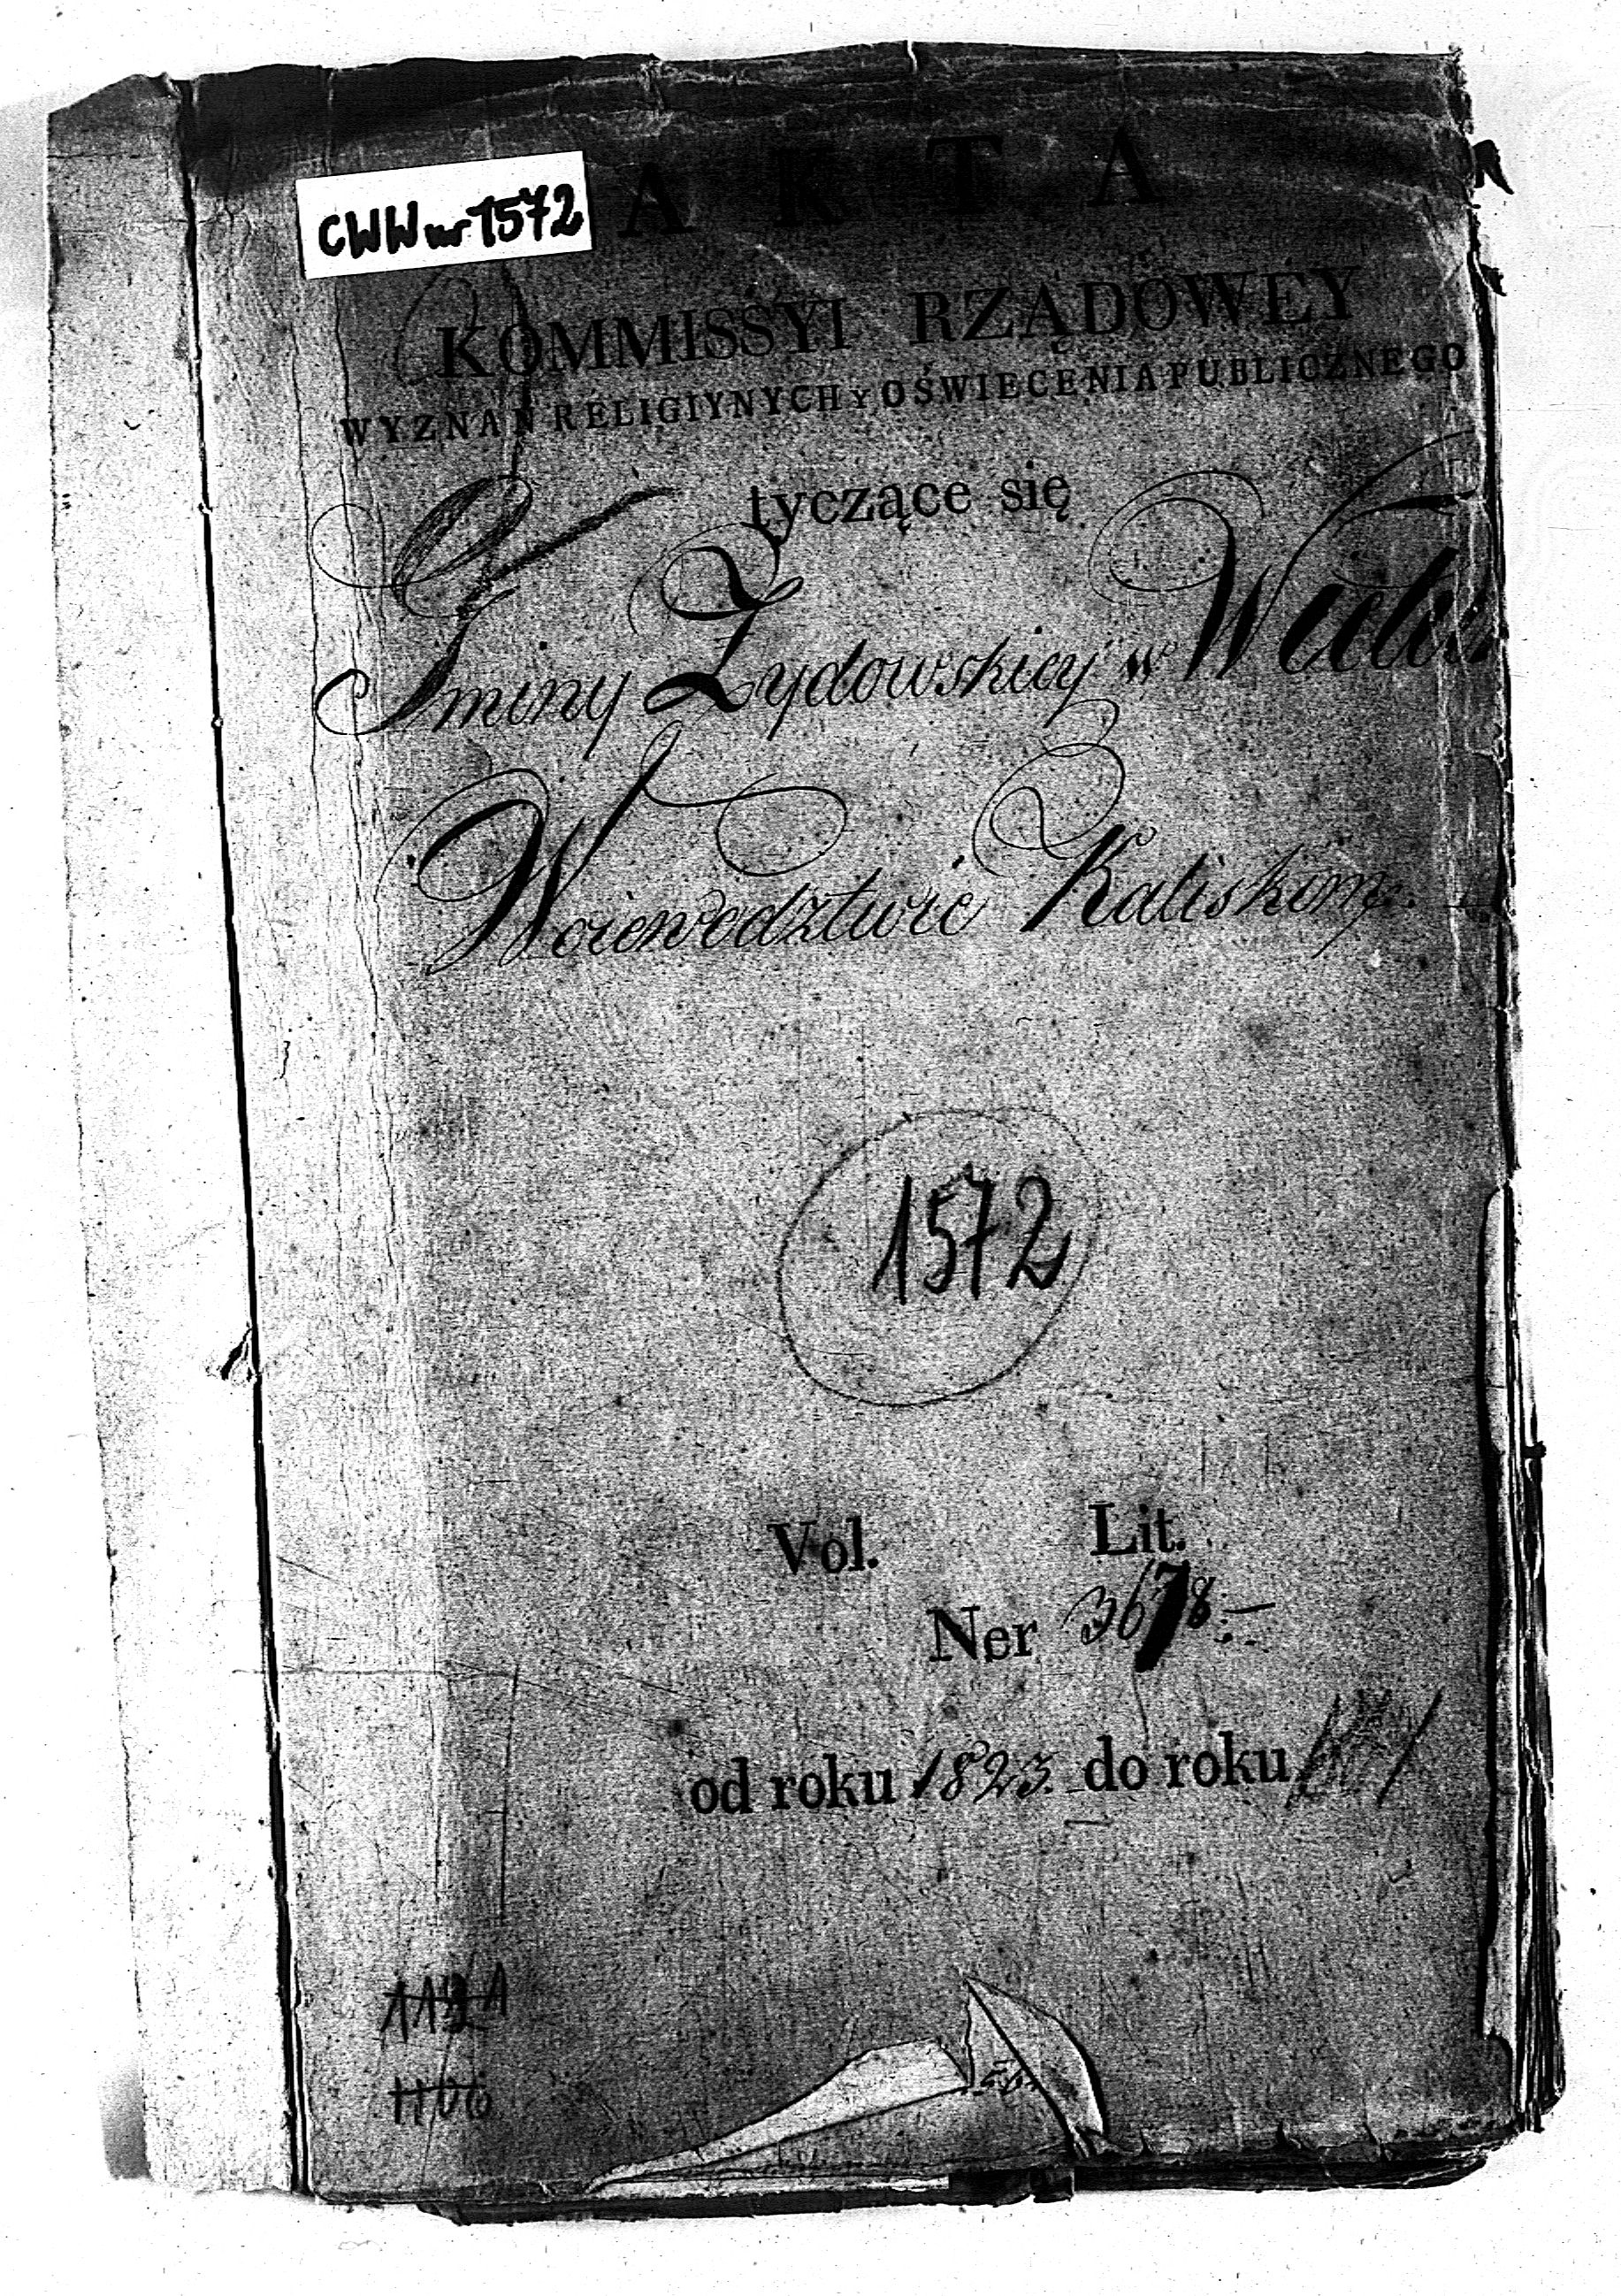 CWW nr 1572
AKTA
KOMMISSYI RZĄDOWEY
WYZNAŃ RELIGIYNYCH Y OŚWIECENIA PUBLICZNEGO
tyczące się
Gminy Żydowskiey w
Woiewodztwie Kaliskim.
1572
Vol. Lit.
Ner 3678.
od roku 1823. do roku